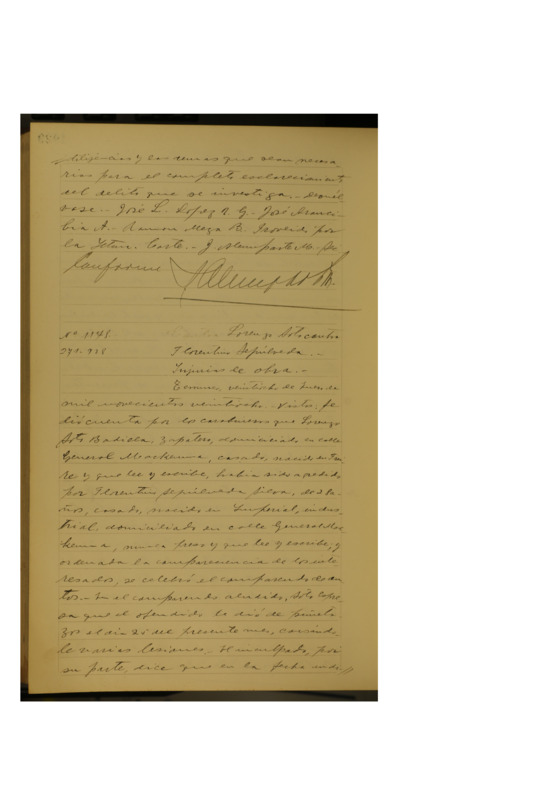 diligencias y las demas que sean necesa-
rias para el completo esclarecimiento
del delito que se investiga.- Devuél
vase.- José L. Lopez U. G. José Aranci-
bia A.- Ramon Meza B. Proveido por
la Iltma. Corte.- J. Alemparte M.
Conforme
Nº. 1148. Lorenzo Soto contra
Florentino Sepúlveda.-
Injurias de obra.-
Temuco, veintiocho de
mil novecientos veintiocho. Vistos. Se
dió cuenta por los carabineros que Lorenzo
Soto Badilla, zapatero, domiciliado en calle
General Mackenna, casado, nacido en
y que lee y escribe, habia sido agredido
por Florentino Sepúlveda Silva, de
años, casado, nacido en Imperial, indus
trial, domiciliado en calle General Mac
kenna, nunca preso y que lee y escribe; y
ordenada la comparecencia de los inte
resados, se celebró el comparendo de au
tos.- En el comparendo aludido, Soto expre
sa que el ofendido le dió de puñeta
zos el dia 26 del presente mes, causándo
le varias lesiones.- El inculpado, por
su parte, dice que en la fecha indi //